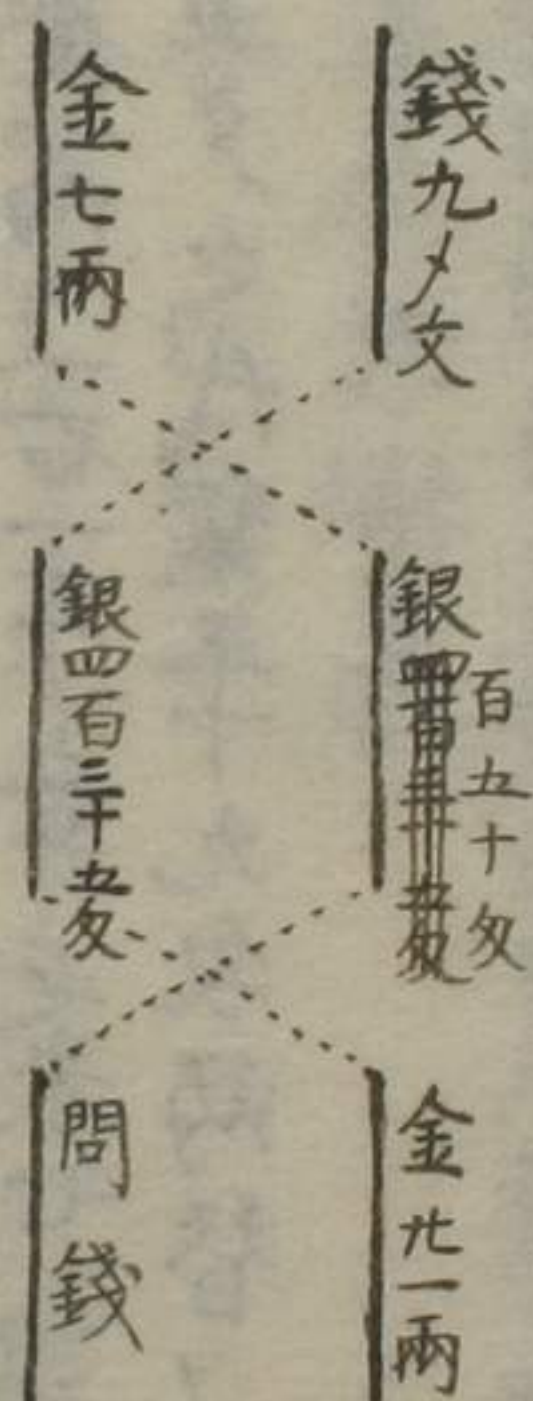 錢九〆文
銀百五十匁
金廿一兩
金七兩
銀四百三十五匁
問錢